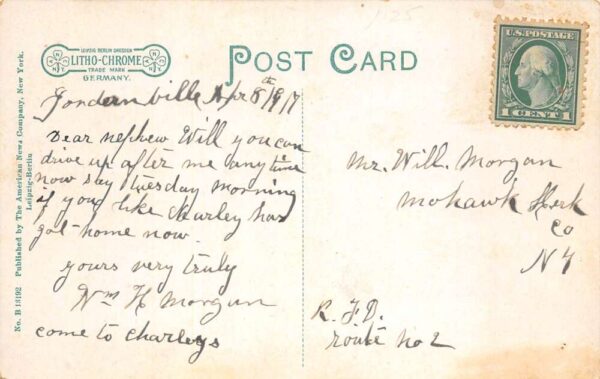 LEIPZIG BERLIN DRESDEN
LITHO-CHROME
TRADE MARK
GERMANY.
N.Y.
N.Y.
POST CARD
1125
U.S. POSTAGE
1 CENT 1
No. B 13192 Published by The American News Company, New York.
Leipzig-Berlin
Jordanville Apr 8th 1917
Dear nephew Will you can
drive up after me any time
now say tuesday morning
if you like Hurley has
got home now
yours very truly
Wm H Morgan
come to Charleys
Mr. Will. Morgan
Mohawk Herk
Co
N Y
R. F. D.
route no 2